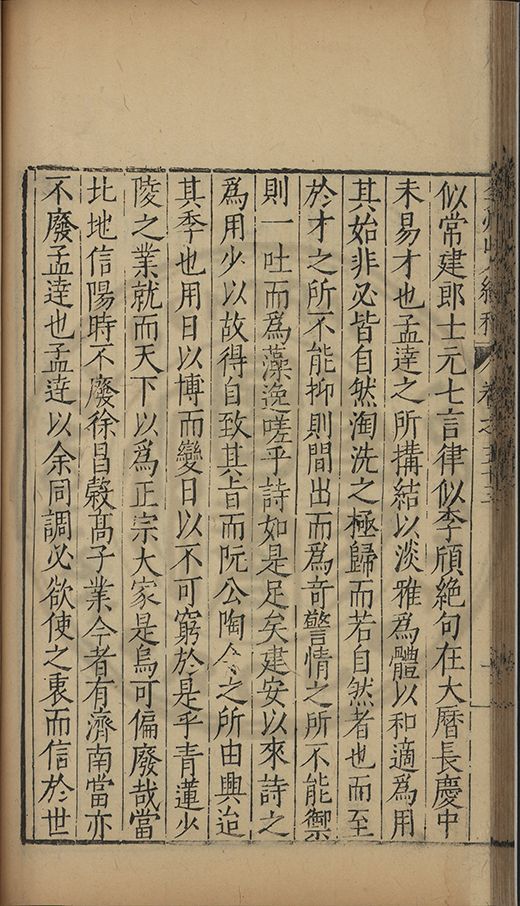 似常建郎士元七言律似李頎絕句在大曆長慶中
未易才也孟達之所搆結以淡雅爲體以和適爲用
其始非必皆自然淘洗之極歸而若自然者也而至
於才之所不能抑則間出而爲奇警情之所不能禦
則一吐而爲藻逸嗟乎詩如是足矣建安以來詩之
爲用少以故得自致其旨而阮公陶令之所由興迨
其季也用日以博而變日以不可窮於是乎青蓮少
陵之業就而天下以爲正宗大家是烏可偏廢哉當
北地信陽時不廢徐昌穀髙子業今者有濟南當亦
不廢孟達也孟達以余同調必欲使之衷而信於世